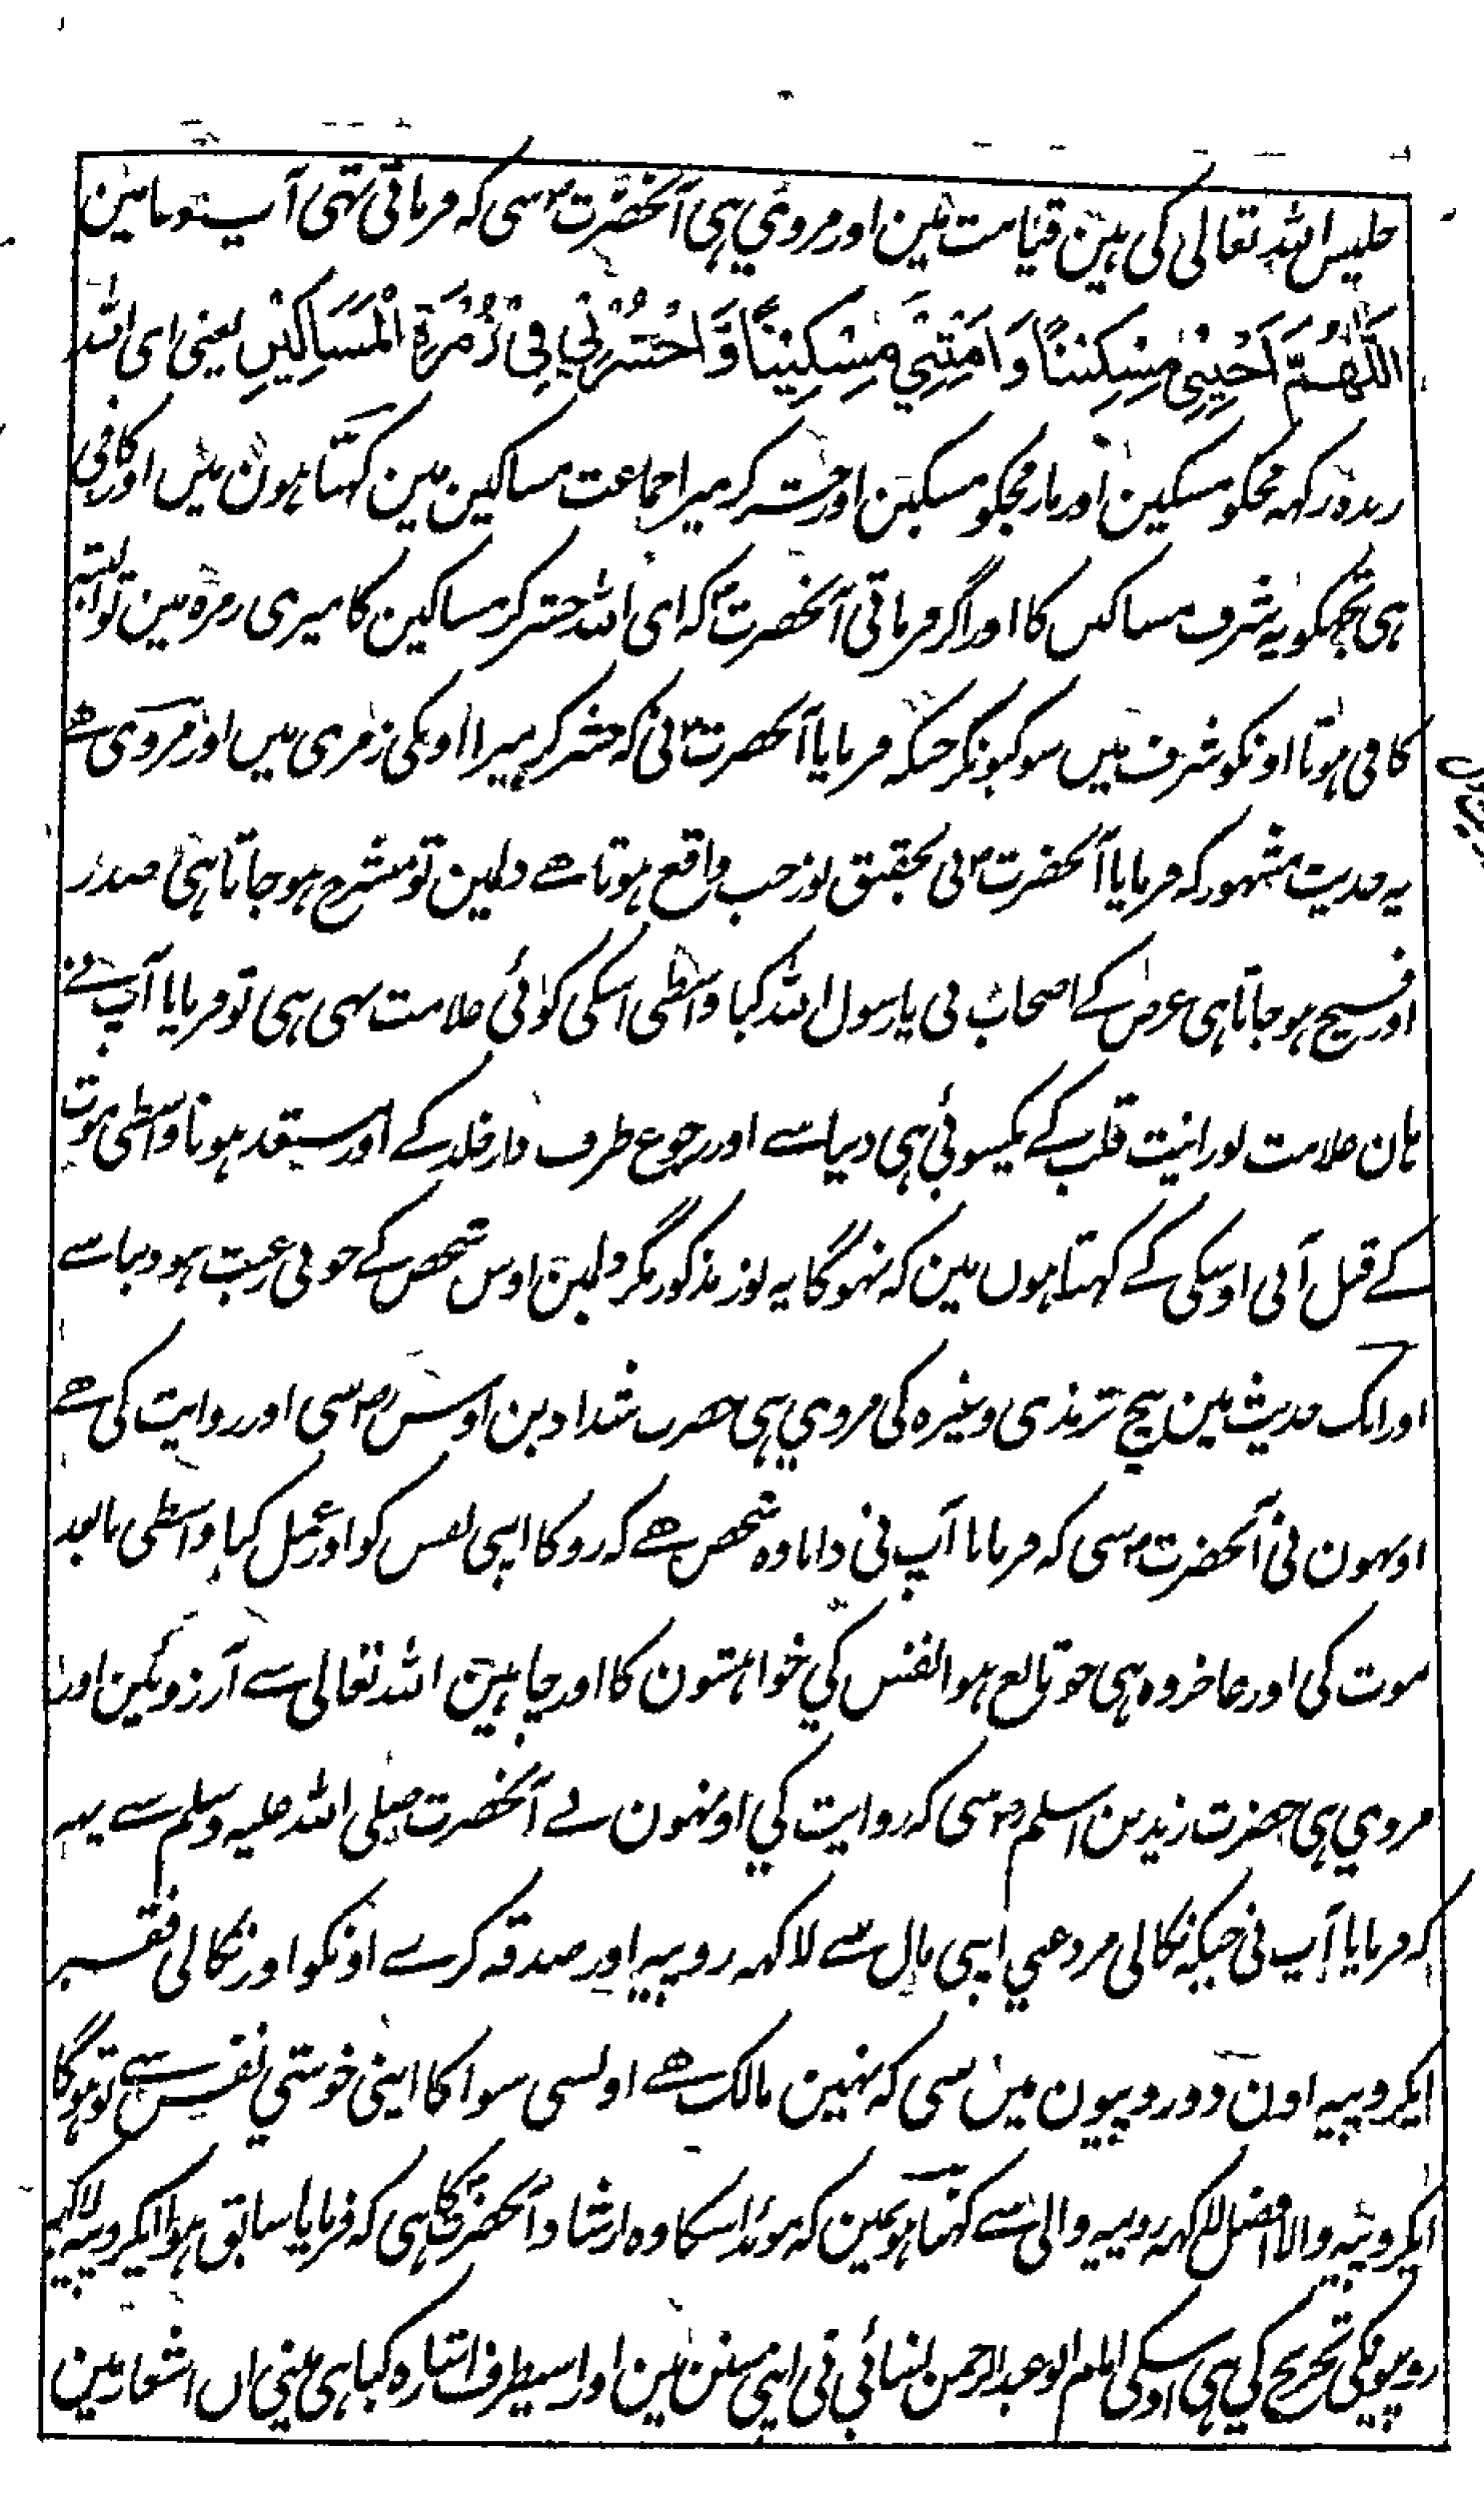 جلیس اللہ تعالی کی ہین قیامت مین اور مروی ہی آنحضرت ؐ سی کہ فرماتی تہی آپ دعا مین
اَللّٰهُمَّ اَحْيِنِيْ مِسْكِيْنًا وَ اَمِتْنِيْ مِسْكِيْنًا وَّاحْشُرْنِيْ فِيْ زُمْرَةِ الْمَسَاكِيْنِ یعنی ای اللہ
زندہ رکہہ مجکو مسکین اور مار مجکو مسکین اور حشر کر میرا جماعت مساکین مین کہتا ہون مین اور کافی
ہی تجہکو یہ شرف مساکین کا اور اگر فرماتی آنحضرت ؐ کہ ای اللہ حشر کر مساکین کا میری زمرہ مین تو البتہ
کافی ہوتا اونکو شرف مین سو کیونکر جبکہ فرمایا آنحضرت ؐ نی کہ حشر کر میرا اونکی زمری مین اور مروی ہے
یہ حدیث مشہور کہ فرمایا آنحضرت ؐ نی تحقیق نور جب واقع ہوتا ہے دلمین تو منشرح ہو جاتا ہی صدر
اور فسیح ہو جاتا ہی عرض کے اصحاب نی یا رسول اللہ کیا واسطی اسکی کوئی علامت بہی ہی تو فرمایا آپ نے
ہان علامت نورانیت قلب کے یکسوئی ہی دنیا سے اور رجوع طرف دار خلد کے اور مستعد ہونا واسطی موت
کے قبل آنی اوسکی کے کہتا ہون مین کہ نہوگا یہ نور مذکور مگر دلمین اوس شخص کے جو بی رغبت ہو دنیا سے
اور ایک حدیث مین بیچ ترمذی وغیرہ کی مروی ہی حضرت شداد بن اوس رض سی اور روایت کی ہے
اونہون نی آنحضرت ؐ سی کہ فرمایا آپ نی دانا وہ شخص ہے کہ روکا اپنی نفس کو اور عمل کیا واسطی مابعد
موت کی اور عاجز وہ ہی جو تابع ہوا نفس کی خواہشون کا اور چاہین اللہ تعالی سے آرزوئین اور
مروی ہی حضرت زید بن اسلم رض سی کہ روایت کی اونہون نے آنحضرت صلی اللہ علیہ وسلم سے یہہ
کہ فرمایا آپ نی جبکہ نکالی مرد غنی اپنی مال سے لاکہہ روپیہ اور صدقہ کرے اونکو اور نکالی فقیر
ایکروپیہ اون دو روپیون مین سی کہ نہین مالک ہے اونسی سوا کا اپنی خوشی نفس سے تو ہوگا
ایکروپیہ والا افضل لاکہہ روپیہ والی سے کہتا ہونمین کہ موید اسکا وہ ارشاد آنحضرت ؐ کا ہی کہ فرمایا سابق ہوا ایکروپیہ لاکہہ
روپیونکی تخریج کی ہی اوسکی امام ابو عبد الرحمن نسائی نی اپنی سنن مین اور اسیطرف اشارہ کیا ہی مینی ان اشعار مین